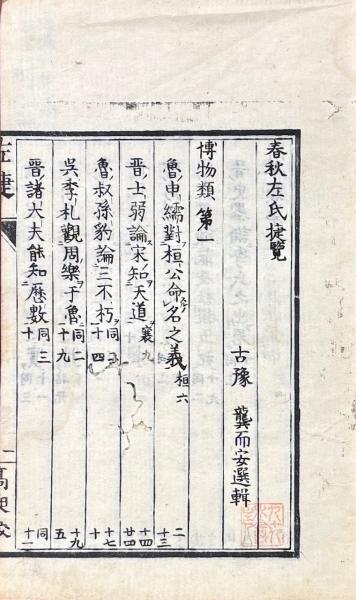 春秋左氏捷覽
古豫 龔而安選輯
博物類第一
魯申繻對桓公命名之義 桓六 二 十三
晉士弱論宋知天道 襄九 十四 廿四
魯叔孫豹論三不朽 同二十四 十七 十
吳季札觀周樂于魯 同二十九 十九 五
晉諸大夫能知歷數 同三十 同 十一
左捷